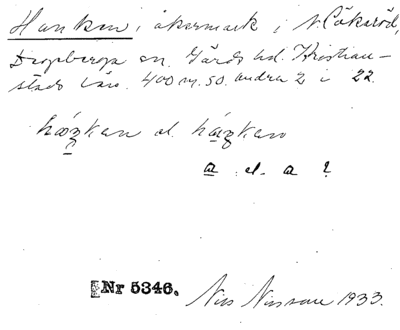 Hanken, åkermark i N. Cåkaröd,
Degeberga sn. Gärds hd. Kristian-
stads län. 400 m. SO. andra 2 i 22.
a el. a ?
Nr 5346. Nils Nilsson 1933.